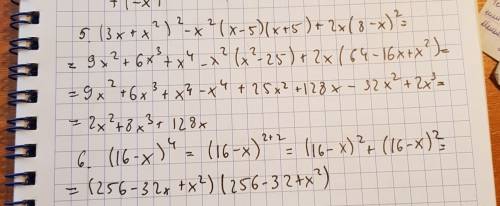 +(-x)
5. (3x+x²)²-x²(x-5)(x+5)+2x(8-x)²=
=9x²+6x³+x⁴-x²(x²-25)+2x(64-16x+x²)=
=9x²+6x³+x⁴-x⁴+25x²+128x-32x²+2x³=
=2x²+8x³+128x
6. (16-x)⁴=(16-x)²⁺²=(16-x)²+(16-x)²=
=(256-32x+x²)(256-32+x²)